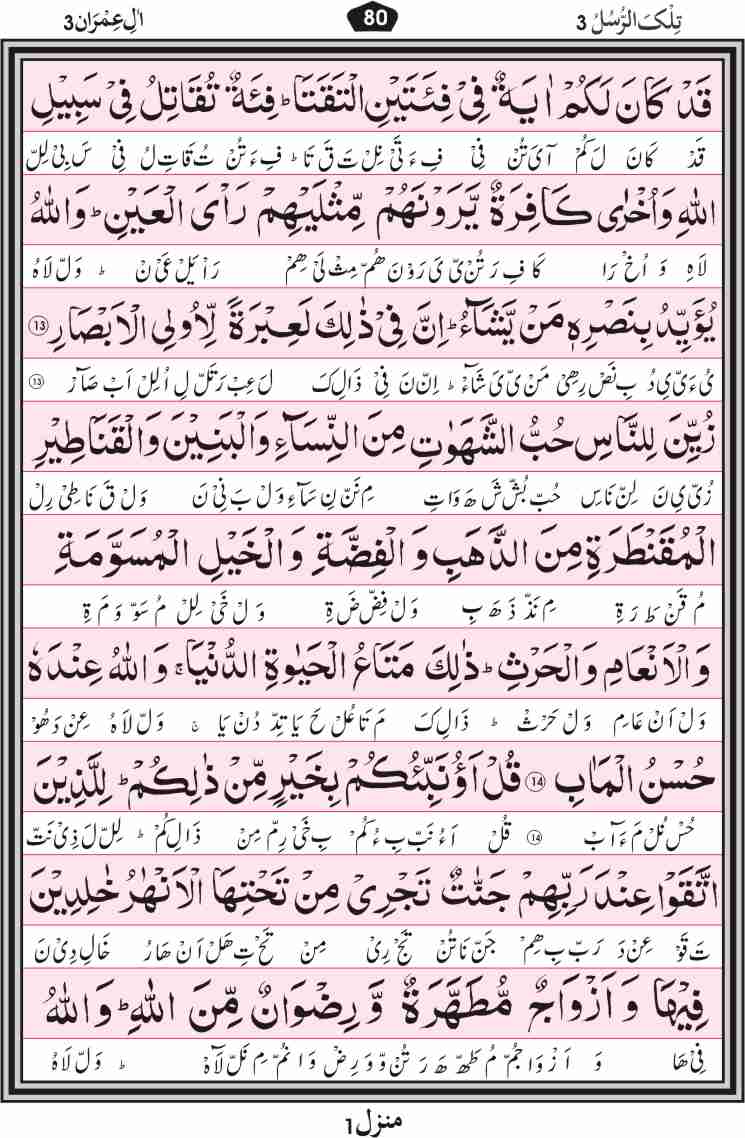 تِلْکَ الرُّسُلُ 3
80
اٰلِ عِمْرَان 3
قَدْ كَانَ لَكُمْ اٰيَةٌ فِىْ فِئَتَيْنِ الْتَقَتَا ؕ فِئَةٌ تُقَاتِلُ فِىْ سَبِيْلِ
قَدْ كَانَ لَ كُمْ آىَ تُنْ فِىْ فِ ءَ تَىْ نِلْ تَ قَ تَا ؕ فِ ءَ تُنْ تُ قَاتِ لُ فِىْ سَ بِىْ لِلْ
اللهِ وَاُخْرٰى كَافِرَةٌ يَّرَوْنَهُمْ مِّثْلَيْهِمْ رَاْىَ الْعَيْنِ ؕ وَاللهُ
لَاهِ وَ اُخْ رَا كَا فِ رَ تُنْ ىْ ىَ رَوْنَ هُمْ مِثْ لَىْ هِمْ رَاْ ئَ يَلْ عَىْ نْ ؕ وَلْ لَاهُ
يُؤَيِّدُ بِنَصْرِهٖ مَنْ يَّشَآءُ ؕ اِنَّ فِىْ ذٰلِكَ لَعِبْرَةً لِّاُولِى الْاَبْصَارِ 13
ىُ ءَىْ ىِ دُ بِ نَصْ رِهِىْ مَنْ ىْ ىَ شَآءْ ؕ اِنْ نَ فِىْ ذَالِ كَ لَ عِبْ رَ تَلْ لِ اُ لِلْ اَبْ صَآرْ 13
زُيِّنَ لِلنَّاسِ حُبُّ الشَّهَوٰتِ مِنَ النِّسَآءِ وَالْبَنِيْنَ وَالْقَنَاطِيْرِ
زُىْ ىِ نَ لِنْ نَاسِ حُبْ بُشْ شَ هَ وَاتِ مِ نَنْ نِ سَآءِ وَلْ بَ نِىْ نَ وَلْ قَ نَا طِىْ رِلْ
الْمُقَنْطَرَةِ مِنَ الذَّهَبِ وَالْفِضَّةِ وَالْخَيْلِ الْمُسَوَّمَةِ
مُ قَنْ طَ رَ ةِ مِ نَذْ ذَ هَ بِ وَلْ فِضْ ضَ ةِ وَ لْ خَىْ لِلْ مُ سَوْ وَ مَ ةِ
وَالْاَنْعَامِ وَالْحَرْثِ ؕ ذٰلِكَ مَتَاعُ الْحَيٰوةِ الدُّنْيَا ۚ وَاللهُ عِنْدَهٗ
وَلْ اَنْ عَامِ وَلْ حَرْثْ ؕ ذَالِ كَ مَ تَا عُلْ حَ يَا تِدْ دُنْ يَا ۚ وَلْ لَاهُ عِنْ دَ هُوْ
حُسْنُ الْمَاٰبِ 14 قُلْ اَؤُنَبِّئُكُمْ بِخَيْرٍ مِّنْ ذٰلِكُمْ ؕ لِلَّذِيْنَ
حُسْ نُلْ مَ ءَآبْ 14 قُلْ اَ ءُ نَبْ بِ ءُ كُمْ بِ خَىْ رِمْ مِنْ ذَالِ كُمْ ؕ لِلْ لَ ذِىْ نَتْ
اتَّقَوْا عِنْدَ رَبِّهِمْ جَنّٰتٌ تَجْرِىْ مِنْ تَحْتِهَا الْاَنْهٰرُ خٰلِدِيْنَ
تَ قَوْ عِنْ دَ رَبْ بِ هِمْ جَنْ نَاتُنْ تَجْ رِىْ مِنْ تَحْ تِ هَلْ اَنْ هَارُ خَالِ دِىْ نَ
فِيْهَا وَاَزْوَاجٌ مُّطَهَّرَةٌ وَّرِضْوَانٌ مِّنَ اللهِ ؕ وَاللهُ
فِىْ هَا وَ اَ زْ وَا جُمْ مُ طَهْ هَ رَ تُنْ وْ وَ رِضْ وَا نُمْ مِ نَلْ لَآهْ ؕ وَلْ لَاهُ
منزل 1